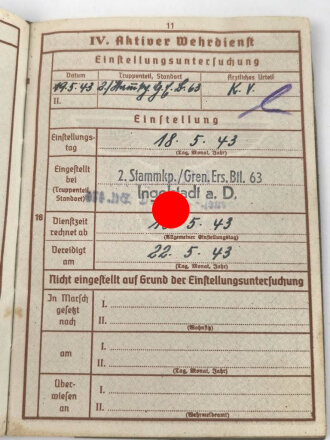 11
IV. Aktiver Wehrdienst
Einstellungsuntersuchung
Datum Truppenteil, Standort Ärztliches Urteil
I. 19.5.43 2./Stamkp. G.E.B. 63 K.V.
II.
Einstellung
Einstellungs-
tag 18. 5. 43
(Tag, Monat, Jahr)
Eingestellt
bei
(Truppenteil,
Standort)
2. Stammkp./Gren. Ers. Btl. 63
Ingolstadt a. D.
16
Dienstzeit
rechnet ab 5. 43
(Allgemeiner Einstellungstag)
Vereidigt
am 22. 5. 43
(Tag, Monat, Jahr)
Nicht eingestellt auf Grund der Einstellungsuntersuchung
In Marsch
gesetzt
nach
I.
II.
(Wohnsitz)
am
I.
II.
(Tag, Monat, Jahr)
Über-
wiesen
an
I.
II.
(Wehrmeldeamt)